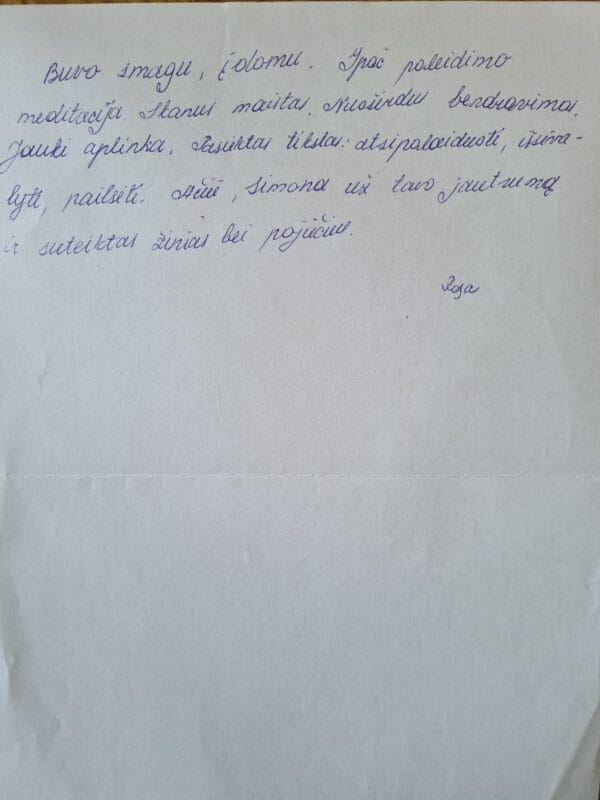 Buvo smagu, įdomu. Ypač paleidimo
meditacija. Skanus maistas. Nuoširdus bendravimas.
Jauki aplinka. Pasiektas tikslas: atsipalaiduoti, išsima-
lyti, pailsėti. Ačiū, Simona už tavo jautrumą
ir suteiktas žinias bei pojūčius.
Rasa